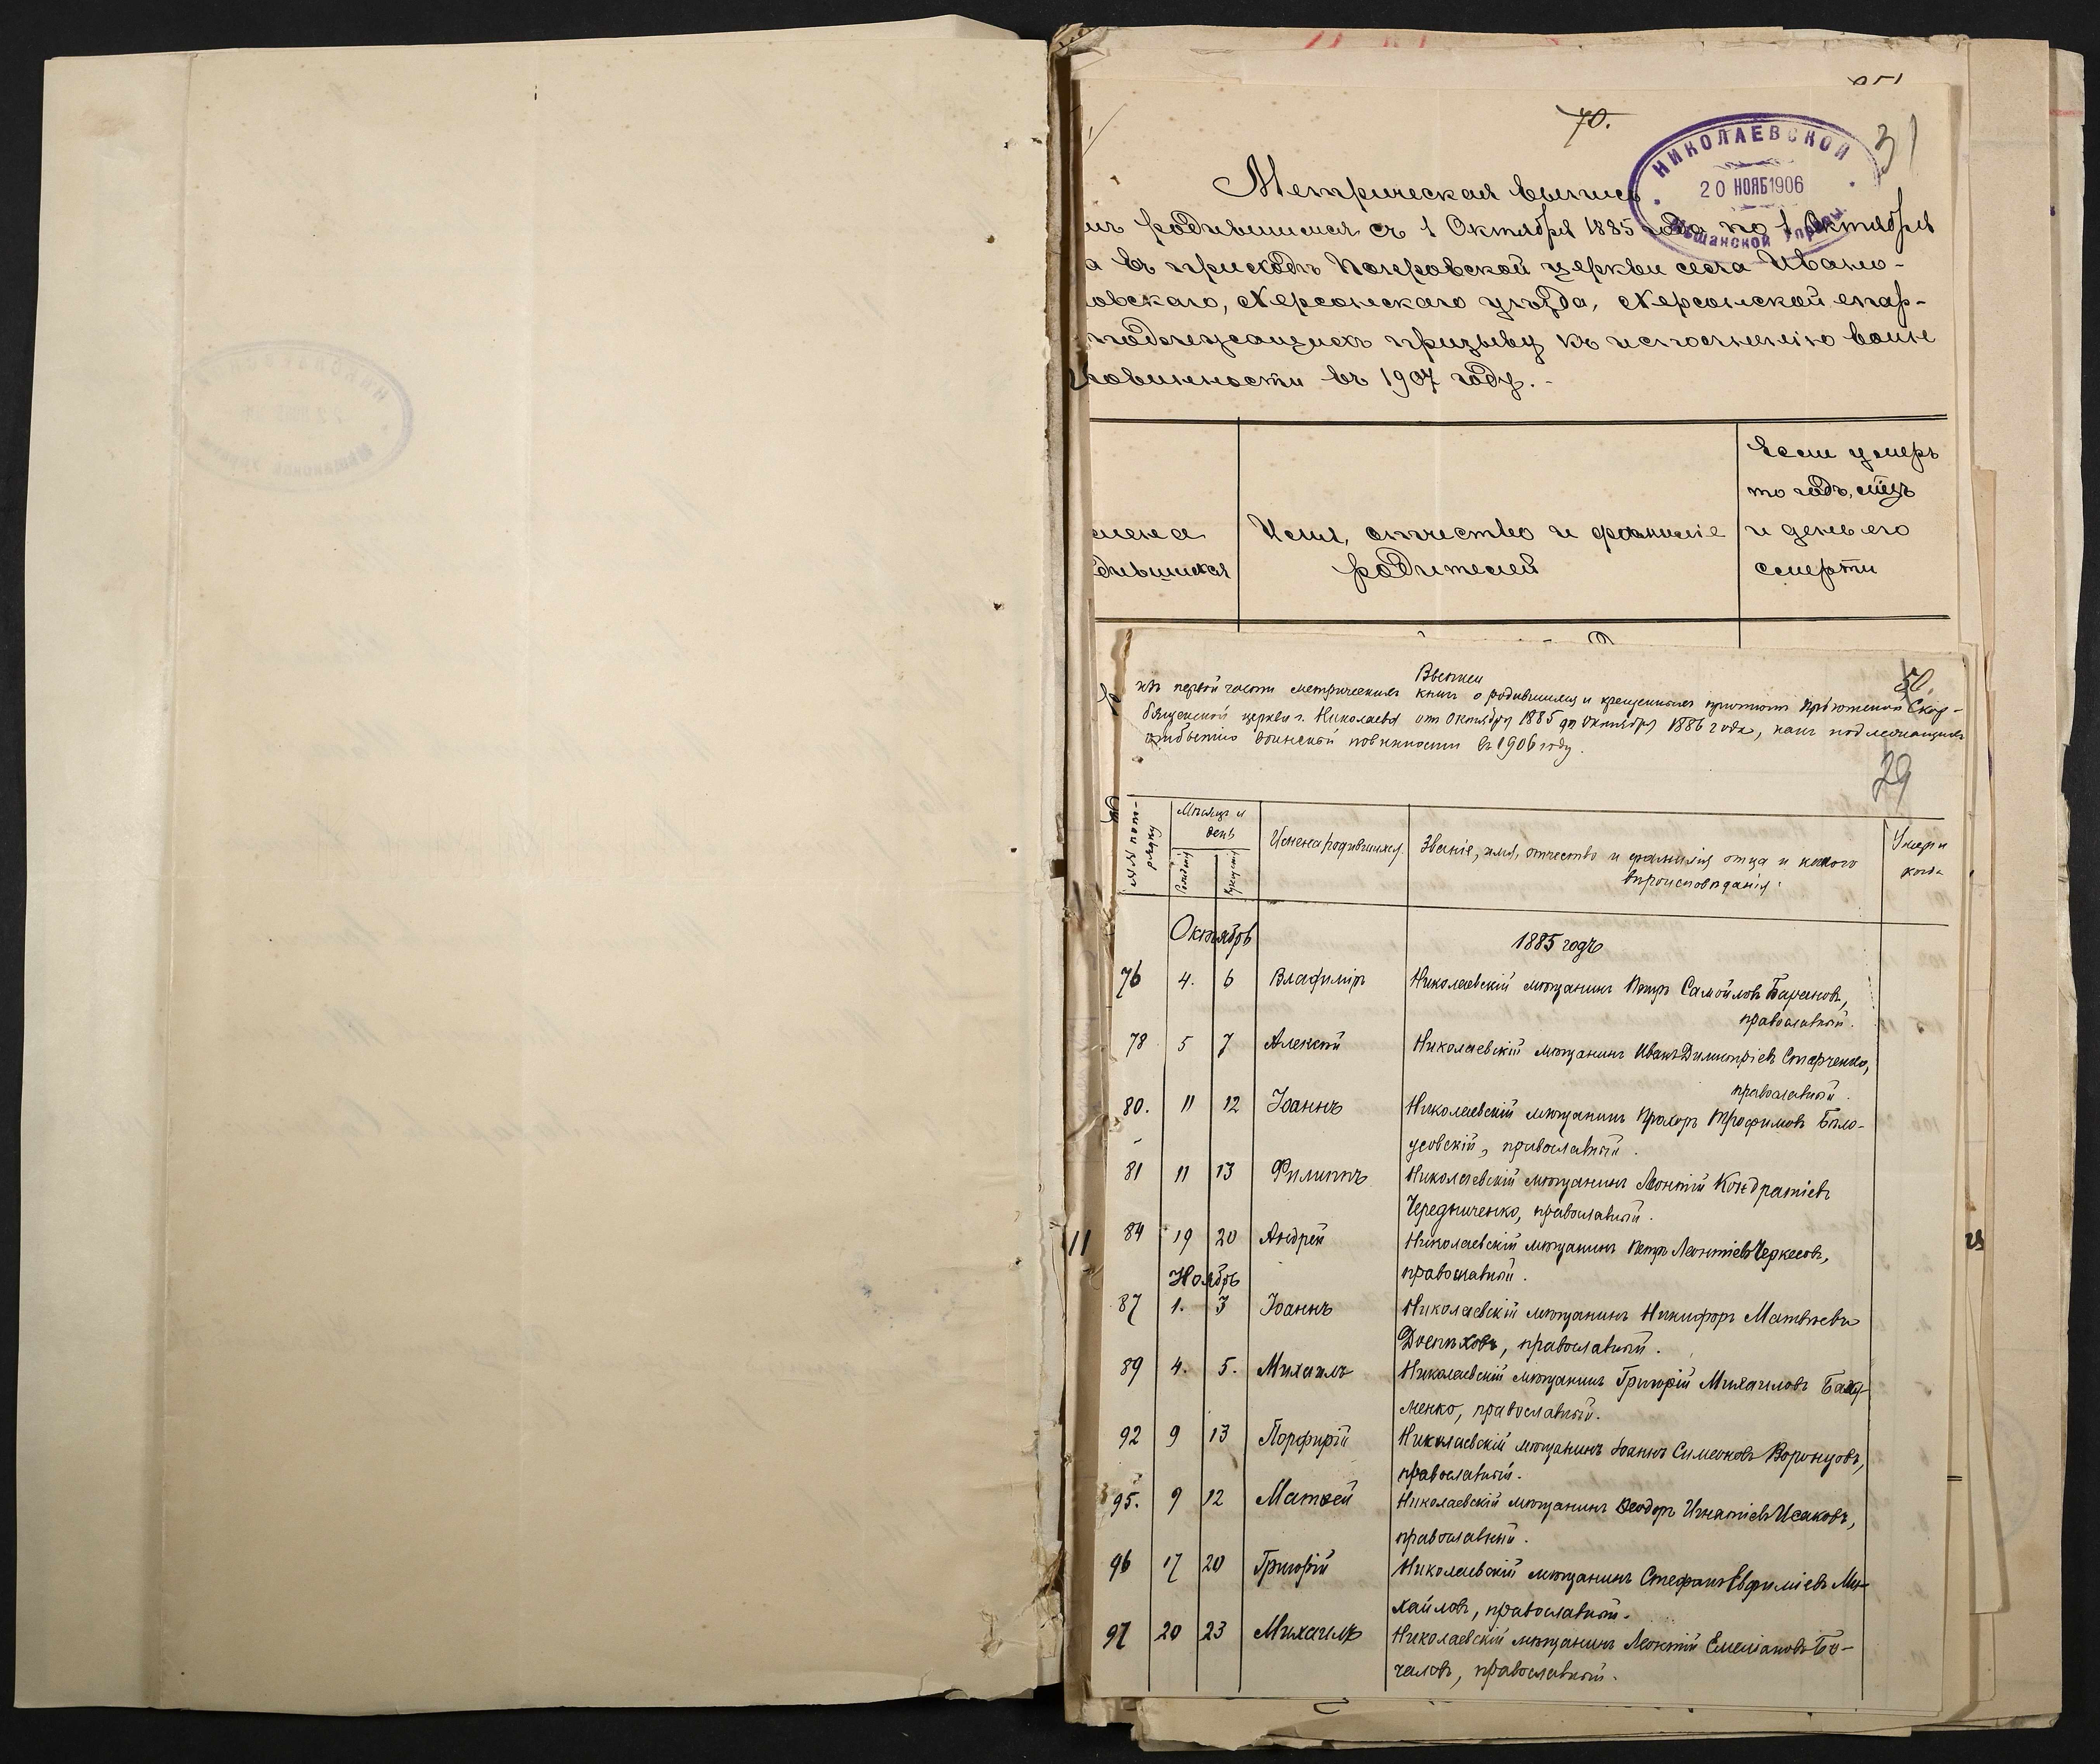 70.
31
НИКОЛАЕВСКОЙ
20 НОЯБ 1906
Мѣщанской Управы
Метрическая выпись
родившихся съ 1 Октября 1885 года по 1 Октября
а въ приходѣ Покровской церкви села Ивано-
овскаго, Херсонскаго уѣзда, Херсонской епар-
подлежащихъ призыву къ исполненію воин
повинности въ 1907 году.-
мена
дившихся
Имя, отчество и фамиліе
родителей
Если умеръ
то годъ, мѣць
и день его
смерти
50.
Выписи
изъ первой части метрическихъ книгъ о родившихся и крещенныхъ Пріютской Скор-
бященской церкви г. Николаева отъ Октября 1885 до Октября 1886 года, какъ подлежащихъ
отбытію воинской повинности въ 1906 году.
29
№№ по по-
рядку
Мѣсяцъ и
день
Рожденія
Крещенія
Имена родившихся
Званіе, имя, отчество и фамилія отца и какого
вѣроисповѣданія.
Умеръ и
когда
Октябрь 1885 годъ
76 4. 6 Владиміръ Николаевскій мѣщанинъ Петръ Самойловъ Барановъ,
православный.
78 5 7 Алексѣй Николаевскій мѣщанинъ Иванъ Димитріевъ Старченко,
православный.
80. 11 12 Іоаннъ Николаевскій мѣщанинъ Прохоръ Трофимовъ Бѣло-
усовскій, православный.
81 11 13 Филиппъ Николаевскій мѣщанинъ Леонтій Кондратіевъ
Чередниченко, православный.
84 19 20 Андрей Николаевскій мѣщанинъ Петръ Леонтіевъ Черкесовъ,
православный.
Ноябрь
87 1. 3 Іоаннъ Николаевскій мѣщанинъ Никифоръ Матвѣевъ
Доспѣховъ, православный.
89 4. 5. Михаилъ Николаевскій мѣщанинъ Григорій Михаиловъ
менко, православный.
92 9 13 Порфирій Николаевскій мѣщанинъ Іоаннъ Симеоновъ Воронцовъ,
православный.
95. 9 12 Матвей Николаевскій мѣщанинъ Ѳеодоръ Игнатіевъ Исаковъ,
православный.
96 17 20 Григорій Николаевскій мѣщанинъ Стефанъ Евфиміевъ Ми-
хайловъ, православный.
97 20 23 Михаилъ Николаевскій мѣщанинъ Леонтій Емеліановъ
чаловъ, православный.